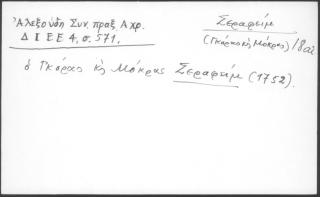 Ἀλεξούδη Συν. πραξ. Αχρ.
Δ Ι Ε Ε 4, σ. 571.
Σεραφείμ
(Γκόρας κὴ Μόκρας) /18αἰ
ὁ Γκόρας κὴ Μόκρας Σεραφείμ (1752).